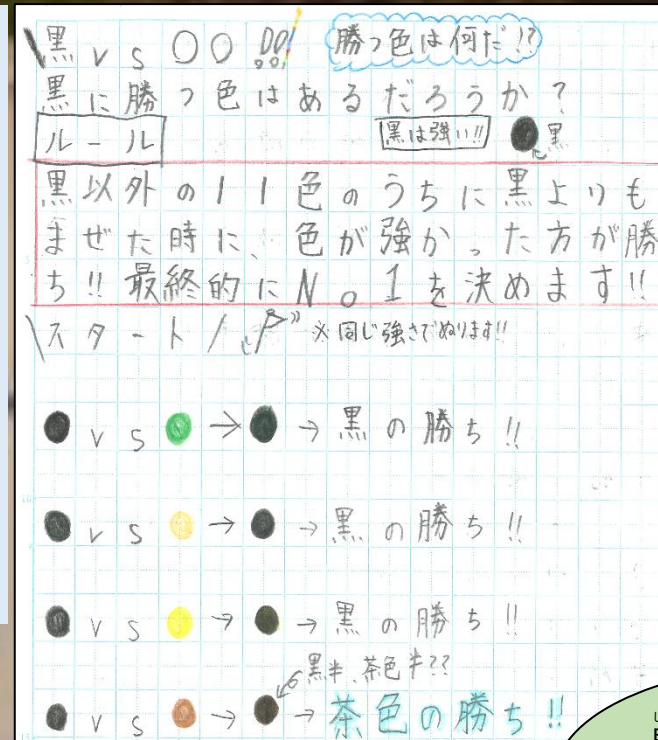 黒 vs ○○!!
勝つ色は何だ!?
黒に勝つ色はあるだろうか?
ルール
黒は強い!!
黒
黒以外の11色のうちに黒よりも
まぜた時に、色が強かった方が勝
ち!!最終的にNo1を決めます!!
\スタート/
※同じ強さでぬります!!
vs → → 黒の勝ち!!
vs → → 黒の勝ち!!
vs → → 黒の勝ち!!
黒半、茶色半??
vs → → 茶色の勝ち!!